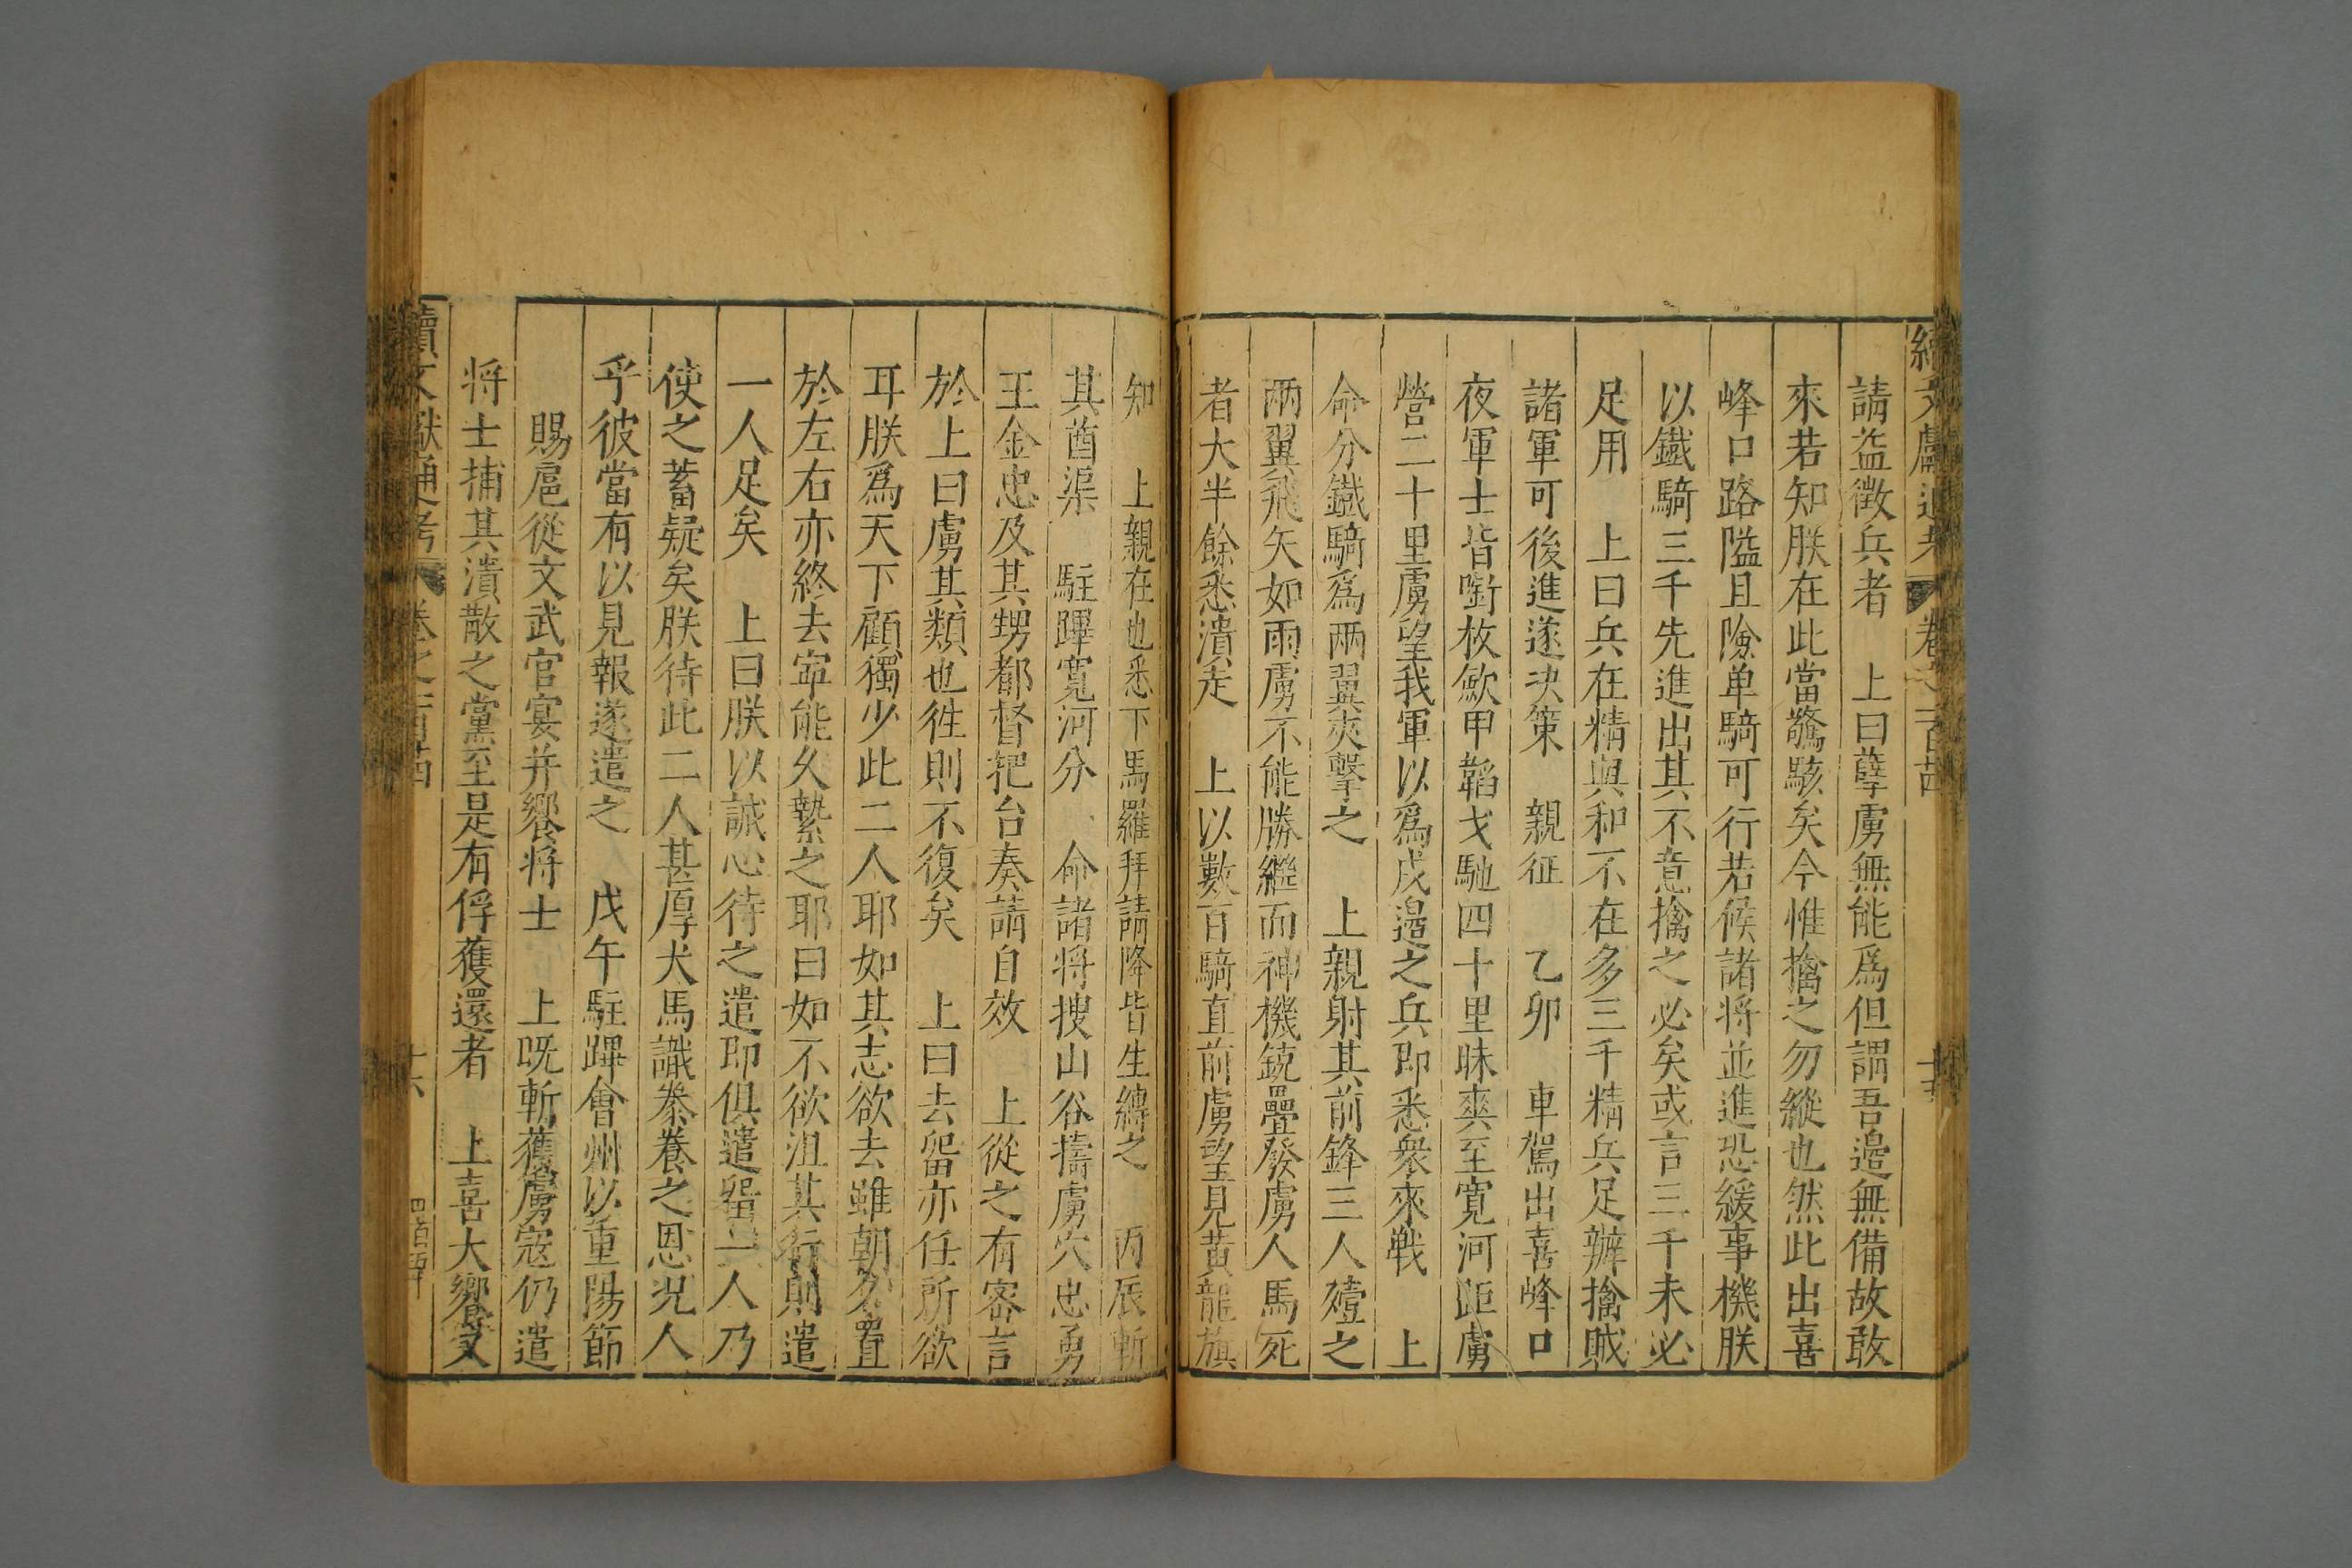 續文獻通考 卷之一百十四
請益徵兵者 上曰孽虜無能爲但謂吾邊無備故敢
來若知朕在此當驚駭矣今惟擒之勿縱也然此出喜
峰口路隘且險单騎可行若候諸将並進恐緩事機朕
以鐵騎三千先進出其不意擒之必矣或言三千未必
足用 上曰兵在精與和不在多三千精兵足辦擒賊
諸軍可後進遂决策 親征 乙卯 車駕出喜峰口
夜軍士皆啣枚歛甲韜戈馳四十里昧爽至寛河距虜
營二十里虜望我軍以爲戍邊之兵即悉衆來戰 上
命分鐵騎爲兩翼夾擊之 上親射其前鋒三人殪之
兩翼飛矢如雨虜不能勝繼而神機銃疊發虜人馬死
者大半餘悉潰走 上以數百騎直前虜望見黃龍旗
知 上親在也悉下馬羅拜請降皆生縛之 丙辰斬
其酋渠 駐蹕寬河分 命諸将搜山谷擣虜穴忠勇
王金忠及其甥都督把台奏請自效 上從之有密言
於上曰虜其類也徃則不復矣 上曰去留亦任所欲
耳朕爲天下顧獨少此二人耶如其志欲去雖朝夕置
於左右亦終去寜能久縶之耶曰如不欲沮其行則遣
一人足矣 上曰朕以誠心待之遣即俱遣留一人乃
使之蓄疑矣朕待此二人甚厚犬馬識豢養之恩况人
乎彼當有以見報遂遣之 戊午駐蹕會州以重陽節
賜扈從文武官宴并饗将士 上旣斬獲虜寇仍遣
将士捕其潰散之黨至是有俘獲還者 上喜大饗文
續文獻通考 卷之一百十四 十六